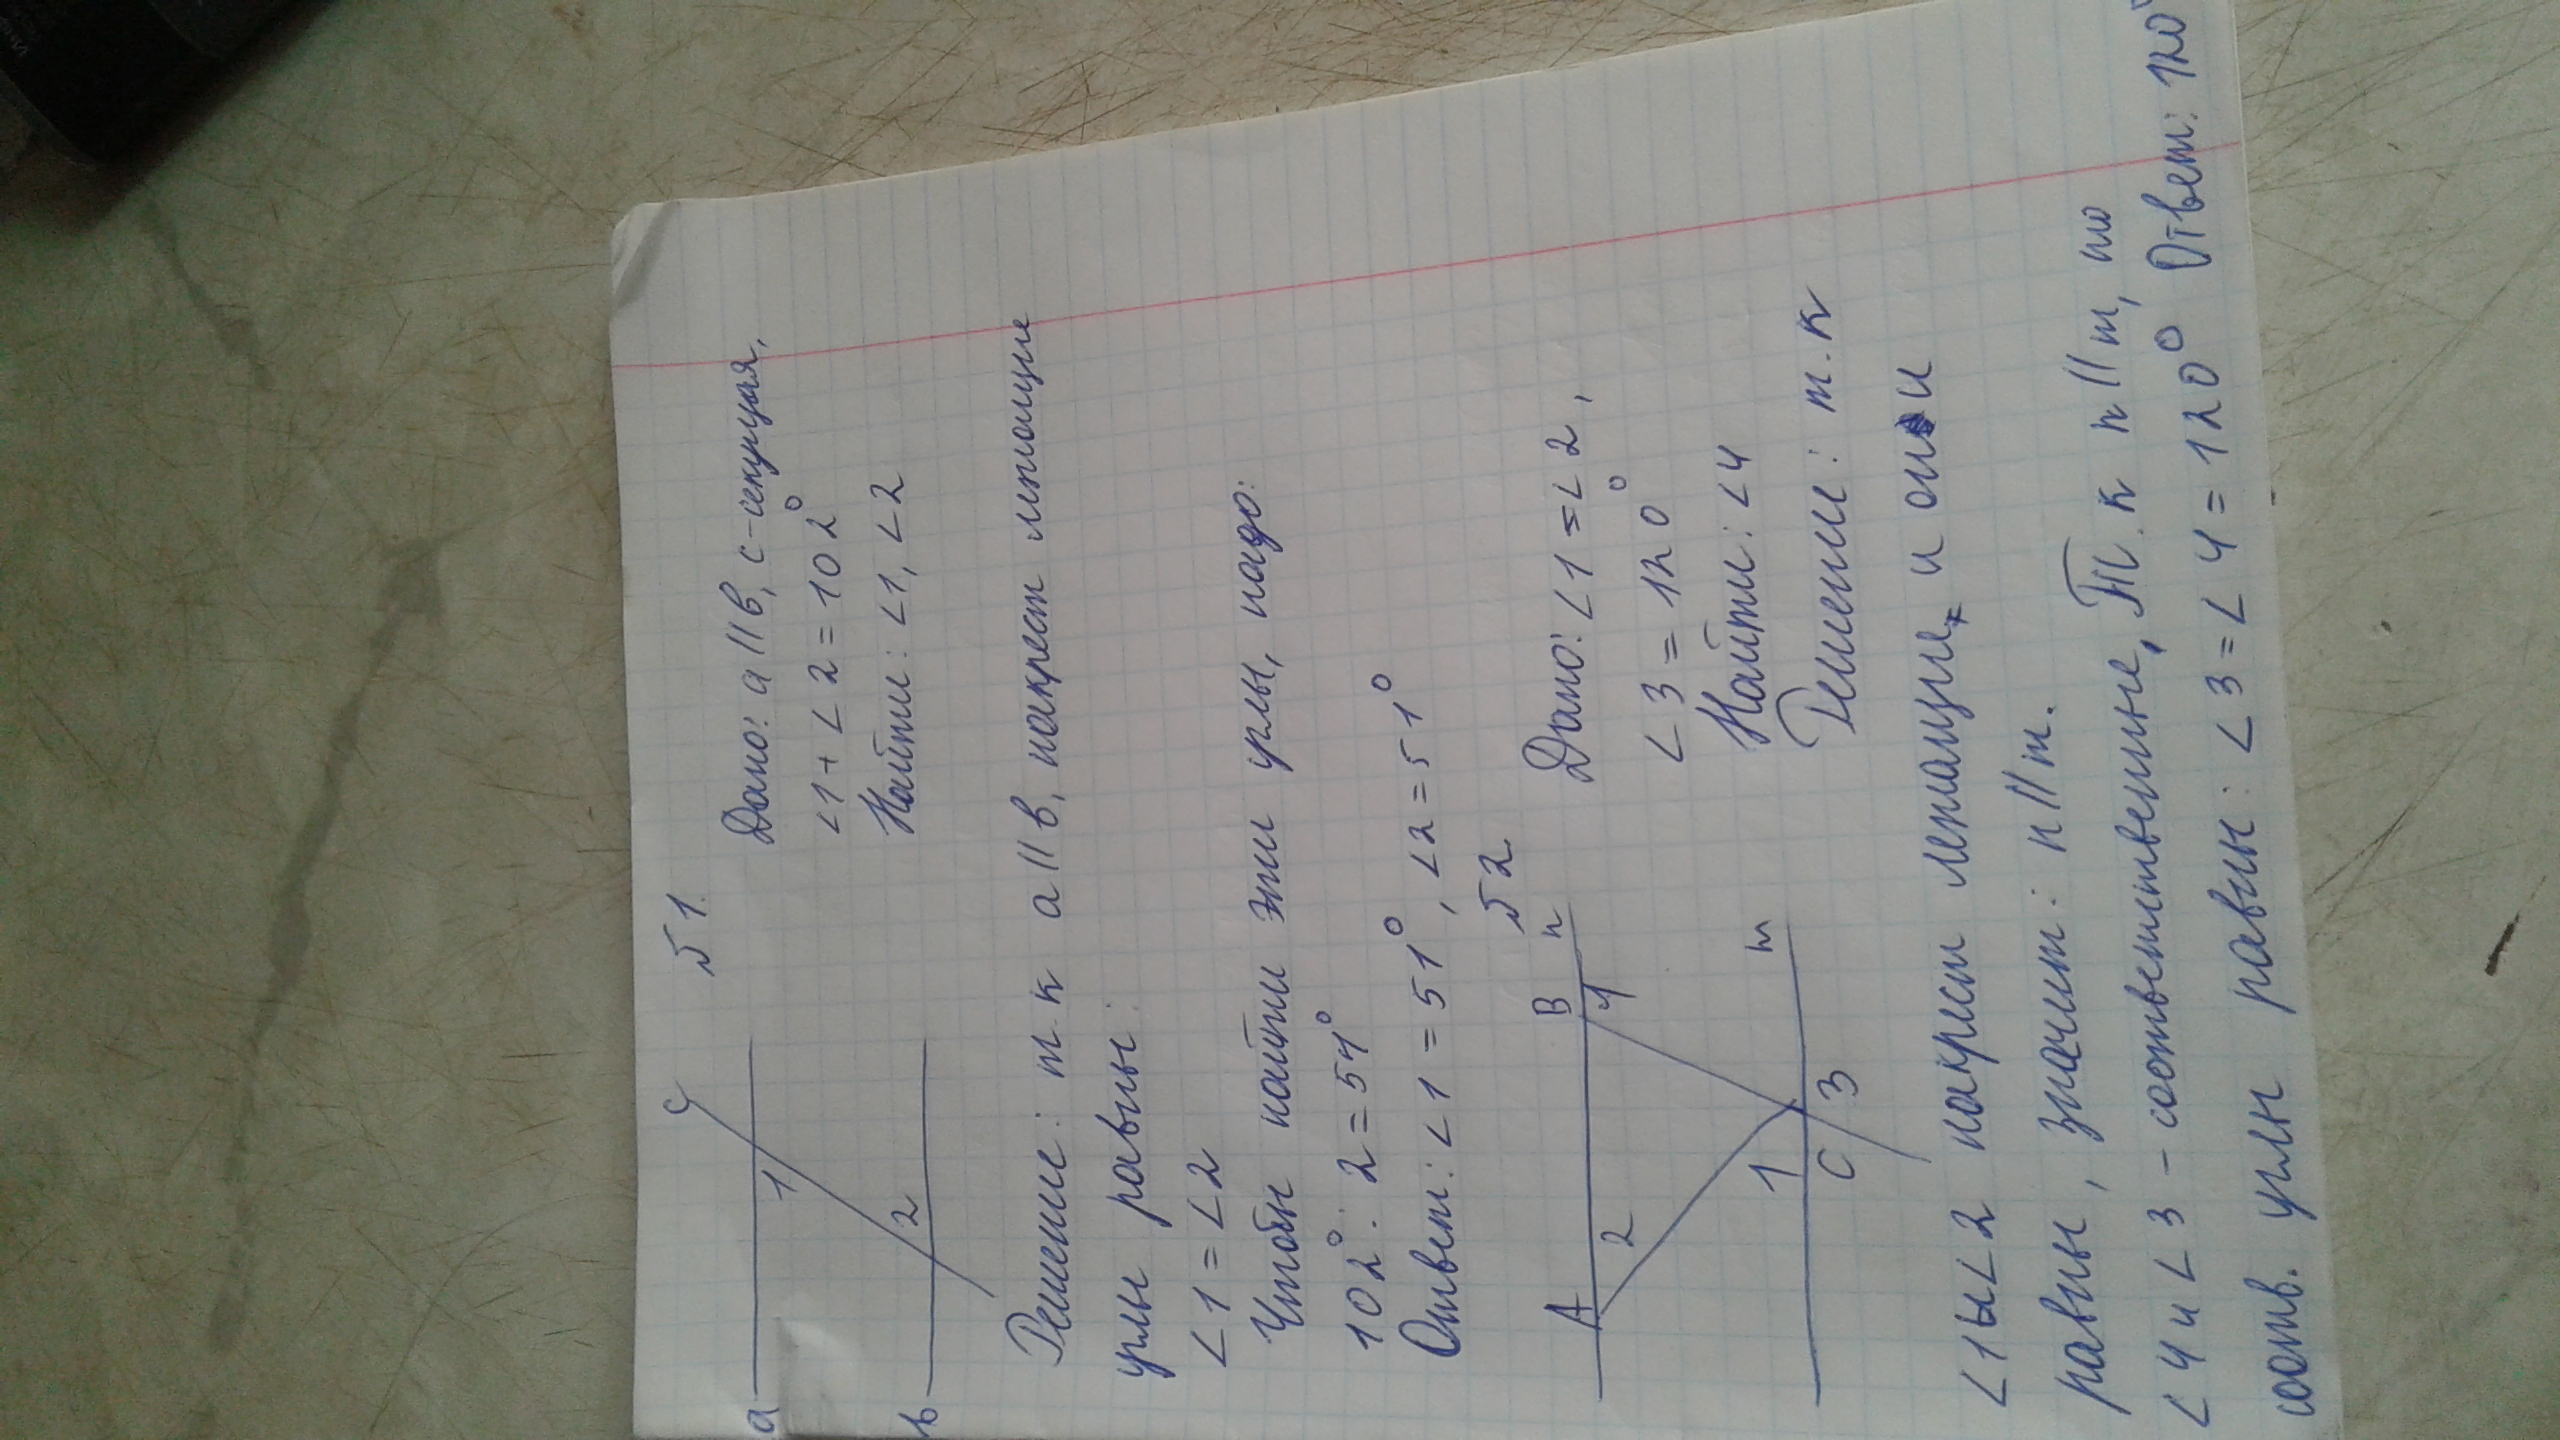 №1
Дано: a || b, c - секущая,
∠1 + ∠2 = 102°
Найти: ∠1, ∠2
c
a
1
b
2
Решение: т.к a || b, накрест лежащие
углы равны:
∠1 = ∠2
Чтобы найти эти углы, надо:
102°: 2 = 54°
Ответ: ∠1 = 51°, ∠2 = 51°
№2
A B n
2 4
1 m
C 3
Дано: ∠1 = ∠2,
∠3 = 120°
Найти: ∠4
Решение: т.к
∠1 и ∠2 накрест лежащие и они
равны, значит: n || m.
∠4 и ∠3 - соответственные, Т.к n || m, то
соотв. углы равны: ∠3 = ∠4 = 120° Ответ: 120°